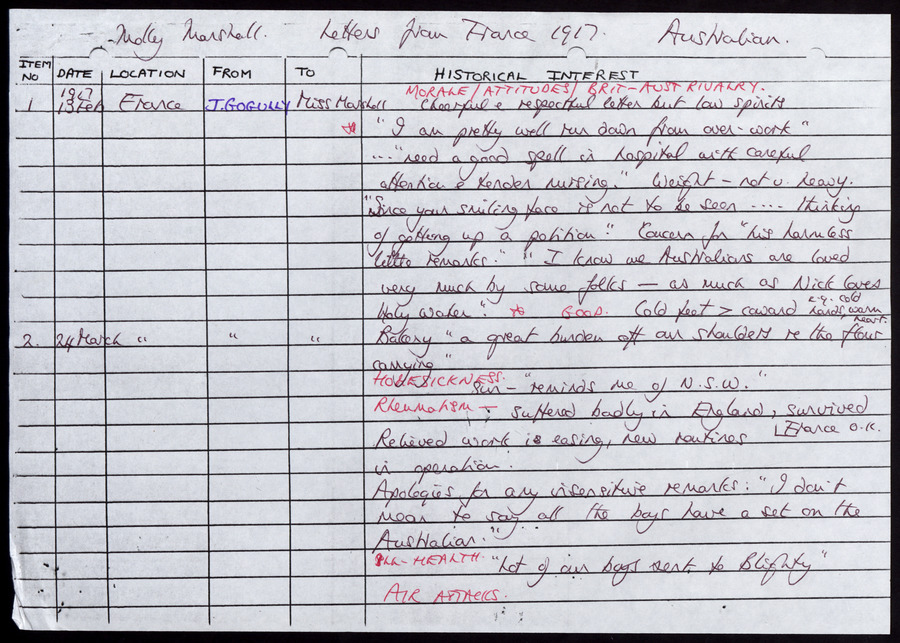 Molly Marshall. Letters from France 1917. Australian.
ITEM NO DATE LOCATION FROM TO HISTORICAL INTEREST
MORALE/ATTITUDES/ BRIT-AUST RIVALRY.
1 1917 13 Feb France J. GOGULLY Miss Marshall Cheerful & respectful letter but low spirits
"I am pretty well run down from over-work"
...."need a good spell in hospital with careful
attention & tender nursing." Weight - not v. heavy.
"Since your smiling face is not to be seen .... thinking
of getting up a petition" Concern for "his harmless
little remarks." "I know we Australians are loved
very much by some folks — as much as Nick loves
Holy water". GOOD. Cold feet > coward e.g. cold hands, warm heart.
2. 24 March " " " " " " "a great burden off our shoulders re the flour
carrying"
HOMESICKNESS. Sun - "reminds me of N.S.W."
Rheumatism - suffered badly in England, survived
France o.k.
Relieved work is easing, new routines
in operation.
Apologies for any insensitive remarks: "I don't
mean to say all the boys have a set on the
Australian."
ILL-HEALTH "Lot of our boys sent to Blighty"
AIR ATTACKS.